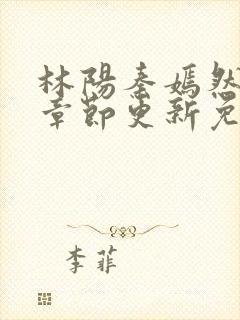 林陽秦嫣然
章節更新免
李菲